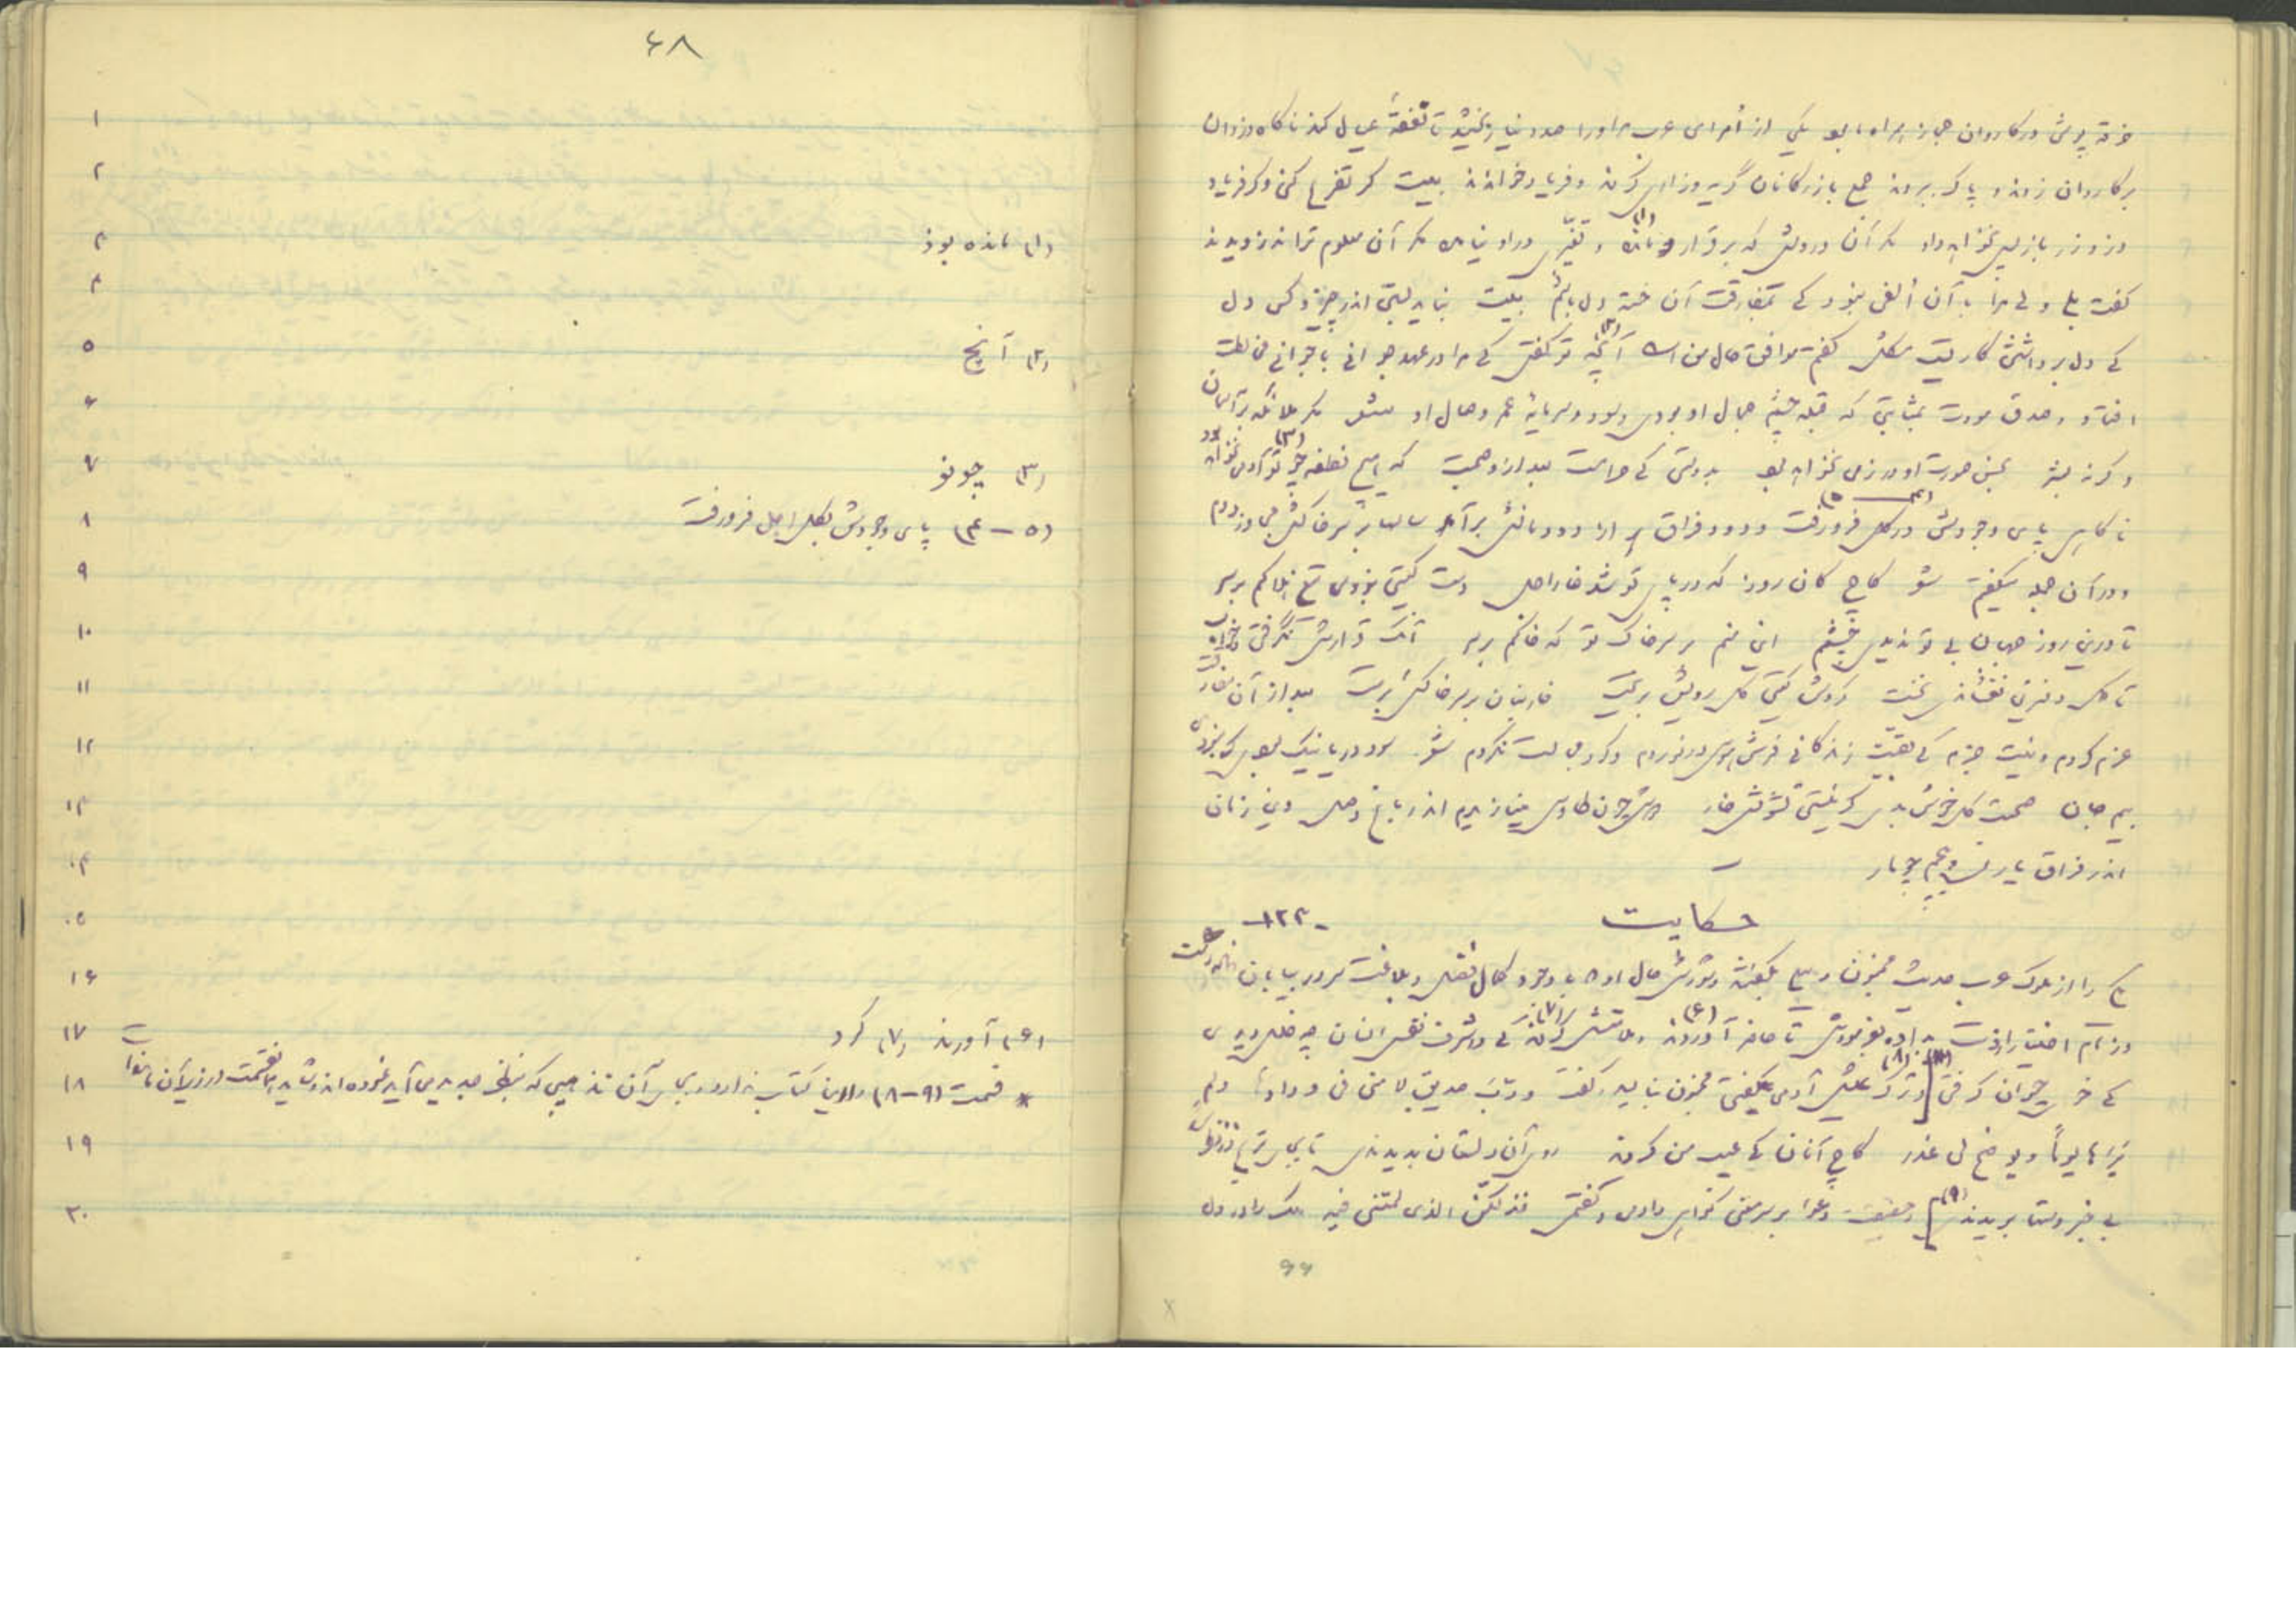 خرقه پوشی در کاروان حجاز همراه ما بود یکی از اُمرای عرب مر او را صد دینار بخشید تا نفقهٔ عیال کند ناگاه دزدان
بر کاروان زدند و پاک ببردند جمع بازرگانان گریه و زاری کردند و فریاد خواندند بیت گر تضرع کنی و گر فریاد
دزد زر باز پس نخواهد داد مگر آن درویش که برقرار مانده (۱) و تغیّری در او نیامد مگر آن معلوم ترا دزد نبرد
گفت بلی ولی مرا با آن اُلفتی نبود کی بمفارقت آن خسته دل باشم بیت نباید بستن اندر چیز و کس دل
کی دل برداشتن کاریست مشکل گفتم موافق حال من است آنچه (۲) تو گفتی کی مرا در عهد جوانی با جوانی مخالطت
افتاد و صدق مودت بمثابتی که قبله چشم جمال او بودی و سود و سرمایهٔ عمر وصال او شعر مگر ملائکه بر آسمان
و گر نه بشر بحسن صورت او در زمی نخواهد بود بدوستی کی حرامست بعد ازو صحبت که هیچ نطفه چو تو (۳) آدمی نخواهد بود
ناگاهی پای وجودش در گل فرو رفت (۴ ــ ۵) و دود فراق از دودمانش برآمد سالها بر سر خاکش مجاورت کردم
و در آن جمله میگفتم شعر کاج کان روز که در پای تو شد خار اجل دست گیتی بزدی تیغ هلاکم بر سر
تا درین روز جهان بی تو ندیدی چشمم این منم بر سر خاک تو که خاکم بر سر آنک قرارش نگرفتی و خواب
تا گل و نسرین نفشاندی نخست گردش گیتی گل رویش بریخت خاربنان بر سر خاکش برست بعد از آن مفارقت
عزم کردم و نیت جزم کی بقیّت زندگانی فرش هوس در نوردم و گرد مجالست نگردم شعر سود دریا نیک بودی گر نبودی
بیم جان صحبت گل خوش بدی گر نیستی تشویش خار دوش چون طاوس مینازیدم اندر باغ وصل وین زمان
اندر فراق یار می‌پیچم چو مار
حکایت -۱۲۳-
یکی را از ملوک عرب حدیث مجنون و لیلی بگفتند و شورش حال او کی با وجود کمال فضل و بلاغت سر در بیابان نهاده است
و زمام اختیار از دست بداده بفرمودش تا حاضر آوردند (۶) و ملامتش کردند (۷) کی در شرف نفس انسان چه خلل دیدی
کی خوی حیوان گرفتی [و ترک (۸) عیش آدمی بگفتی مجنون بنالید و گفت و ربّ صدیق لامنی فی ودادها الم
یَرَها یوماً و یوضح لی عذر کاج آنان کی عیب من کردند روی آن دلستان بدیدندی تا بجای ترنج در نظرت
بی خبر دستها بریدندی] (۹) و حقیقت دعوا بر سر معنی گواهی دادی و گفتمی فذلکنّ الذی لمتننی فیه ملک را در دل
۶۶
۶۸
۱
۲
۳ (۱) مانده بوذ
۴
۵ (۲) آنچ
۶
۷ (۳) چونو
۸ (۵ – ۴) پای وجودش بگل اجل فرو رفت
۹
۱۰
۱۱
۱۲
۱۳
۱۴
۱۵
۱۶
۱۷ (۶) آورند (۷) کرد
۱۸ * قسمت (۹ – ۸) را این کتاب ندارد و بجای آن تذهیبی که بنظر جدید می‌آید نموده‌اند و شاید این قسمت در زیر آن باشد
۱۹
۲۰